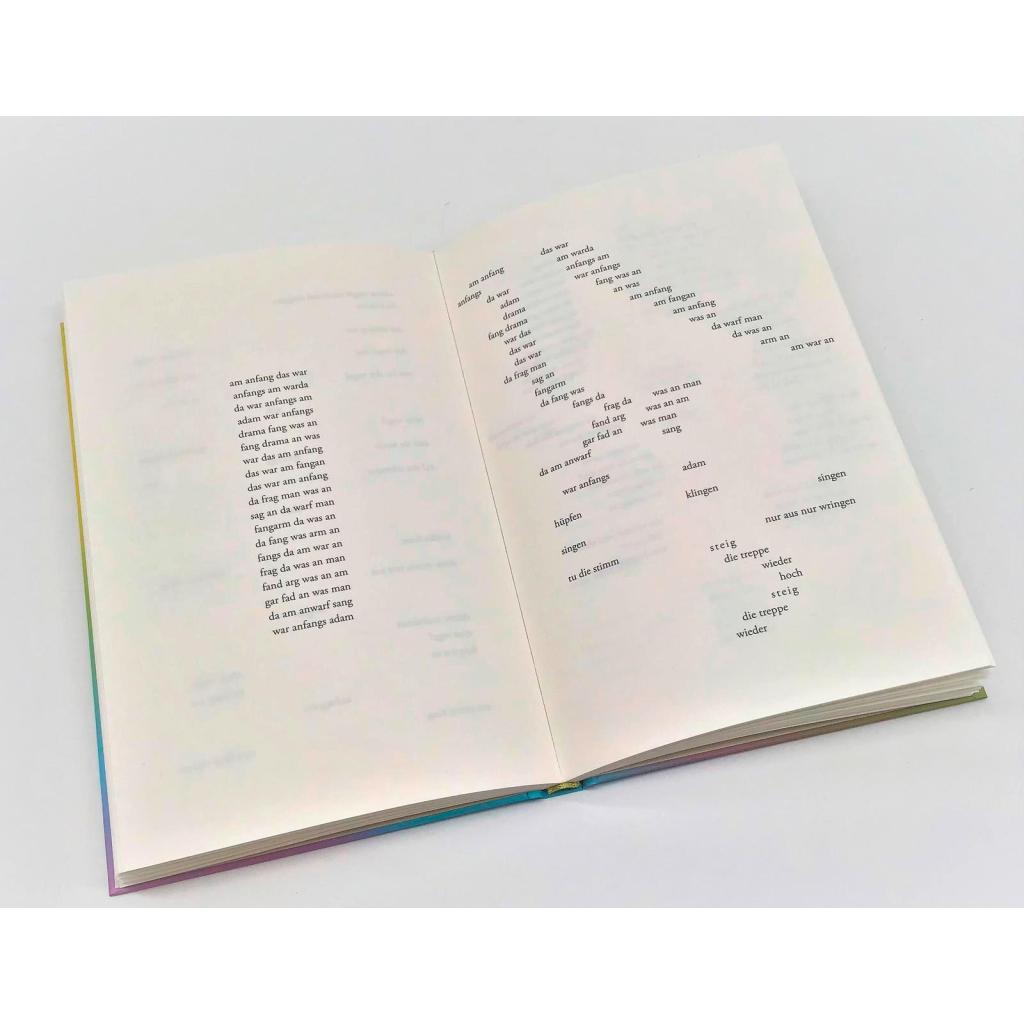 am anfang das war
anfangs am warda
da war anfangs am
adam war anfangs
drama fang was an
fang drama an was
war das am anfang
das war am fangan
das war am anfang
da frag man was an
sag an da warf man
fangarm da was an
da fang was arm an
fangs da am war an
frag da was an man
fand arg was an am
gar fad an was man
da am anwarf sang
war anfangs adam
am anfang
das war
anfangs
am warda
da war
anfangs am
adam
war anfangs
drama
fang was an
fang drama
an was
war das
am anfang
das war
am fangan
das war
am anfang
da frag man
was an
sag an
da warf man
fangarm
da was an
da fang was
arm an
fangs da
am war an
frag da
was an man
fand arg
was an am
gar fad an
was man
da am anwarf
sang
war anfangs
adam
klingen
singen
hüpfen
nur aus nur wringen
singen
steig
ru die stimm
die treppe
wieder
hoch
steig
die treppe
wieder